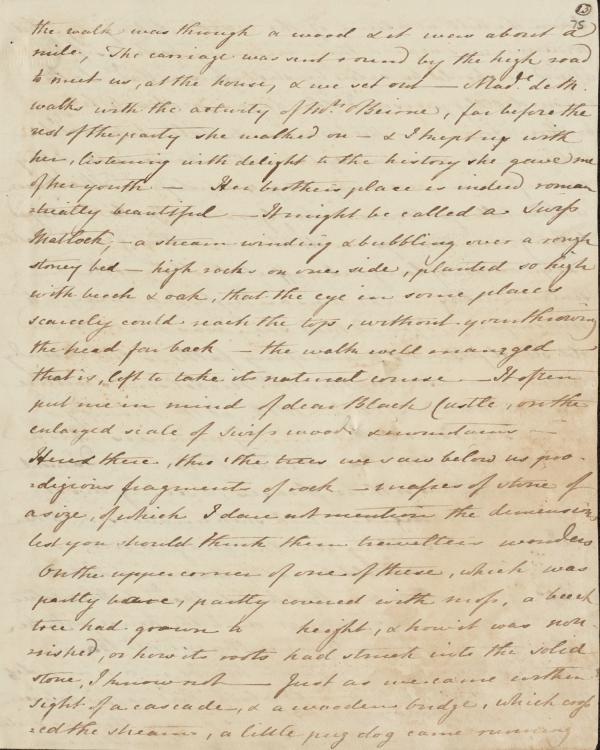 13
75
the walk was through a wood & it was about a
mile, The carriage was sent round by the high road
to meet us, at the house, & we set out — Made. de M.
walks with the activity of Mrs. OBeirne, far before the
rest of the party she walked on — & I kept up with
her, listening with delight to the history she gave me
of her youth — Her brothers place is indeed roman
-tically beautiful — It might be called a Swiss
Matlock, — a stream winding & bubbling over a rough
stoney bed — high rocks on one side, planted so high
with beech & oak, that the eye in some places
scarcely could reach the tops, without your throwing
the head far back — the walk well managed —
that is, left to take its natural course — It often
put me in mind of dear Black Castle, on the
enlarged scale of Swiss woods & mountains —
Here & there, thro' the trees we saw below us pro-
-digious fragments of rock — masses of stone of
a size, of which I dare not mention the dimensions
lest you should think them travellers wonders
On the upper corner of one of these, which was
partly bare, partly covered with moss, a beech
tree had grown to height, & how it was nou-
-rished, or how its roots had struck into the solid
stone, I know not — Just as we came within
sight of a cascade, & a wooden bridge, which cross
-ed the stream, a little pug dog came running